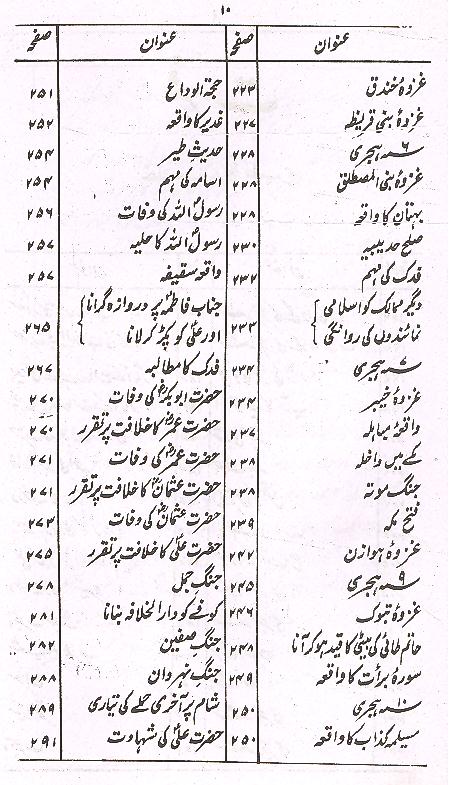 ۱۰
عنوان صفحہ
غزوۂ خندق ۲۲۳
غزوۂ بنی قریظہ ۲۲۷
۶ سنہ ہجری ۲۲۸
غزوۂ بنی المصطلق ۲۲۸
بہتان کا واقعہ ۲۲۸
صلح حدیبیہ ۲۳۰
فدک کی مہم ۲۳۲
دیگر ممالک کو اسلامی
نمائندوں کی روانگی ۲۳۳
۷ سنہ ہجری ۲۳۴
غزوۂ خیبر ۲۳۴
واقعۂ مباہلہ ۲۳۷
مکے میں داخلہ ۲۳۸
جنگ موتہ ۲۳۸
فتح مکہ ۲۳۹
غزوۂ ہوازن ۲۴۲
۹ سنہ ہجری ۲۴۵
غزوۂ تبوک ۲۴۶
حاتم طائی کی بیٹی کا قید ہو کر آنا ۲۴۸
سورۂ برأت کا واقعہ ۲۴۹
۱۰ سنہ ہجری ۲۵۰
مسیلمہ کذاب کا واقعہ ۲۵۰
عنوان صفحہ
حجۃ الوداع ۲۵۱
غدیر کا واقعہ ۲۵۲
حدیث طیر ۲۵۴
اسامہ کی مہم ۲۵۴
رسول اللہ کی وفات ۲۵۶
رسول اللہ کا حلیہ ۲۵۷
واقعہ سقیفہ ۲۵۷
جناب فاطمہؑ پر دروازہ گرانا
اور علیؑ کو پکڑ کر لانا ۲۶۵
فدک کا مطالبہ ۲۶۷
حضرت ابو بکرؓ کی وفات ۲۷۰
حضرت عمرؓ کا خلافت پر تقرر ۲۷۰
حضرت عمرؓ کی وفات ۲۷۱
حضرت عثمانؓ کا خلافت پر تقرر ۲۷۱
حضرت عثمانؓ کی وفات ۲۷۳
حضرت علیؑ کا خلافت پر تقرر ۲۷۵
جنگ جمل ۲۷۸
کوفے کو دار الخلافہ بنانا ۲۸۱
جنگ صفین ۲۸۲
جنگ نہروان ۲۸۸
شام پر آخری حملے کی تیاری ۲۸۹
حضرت علیؑ کی شہادت ۲۹۱